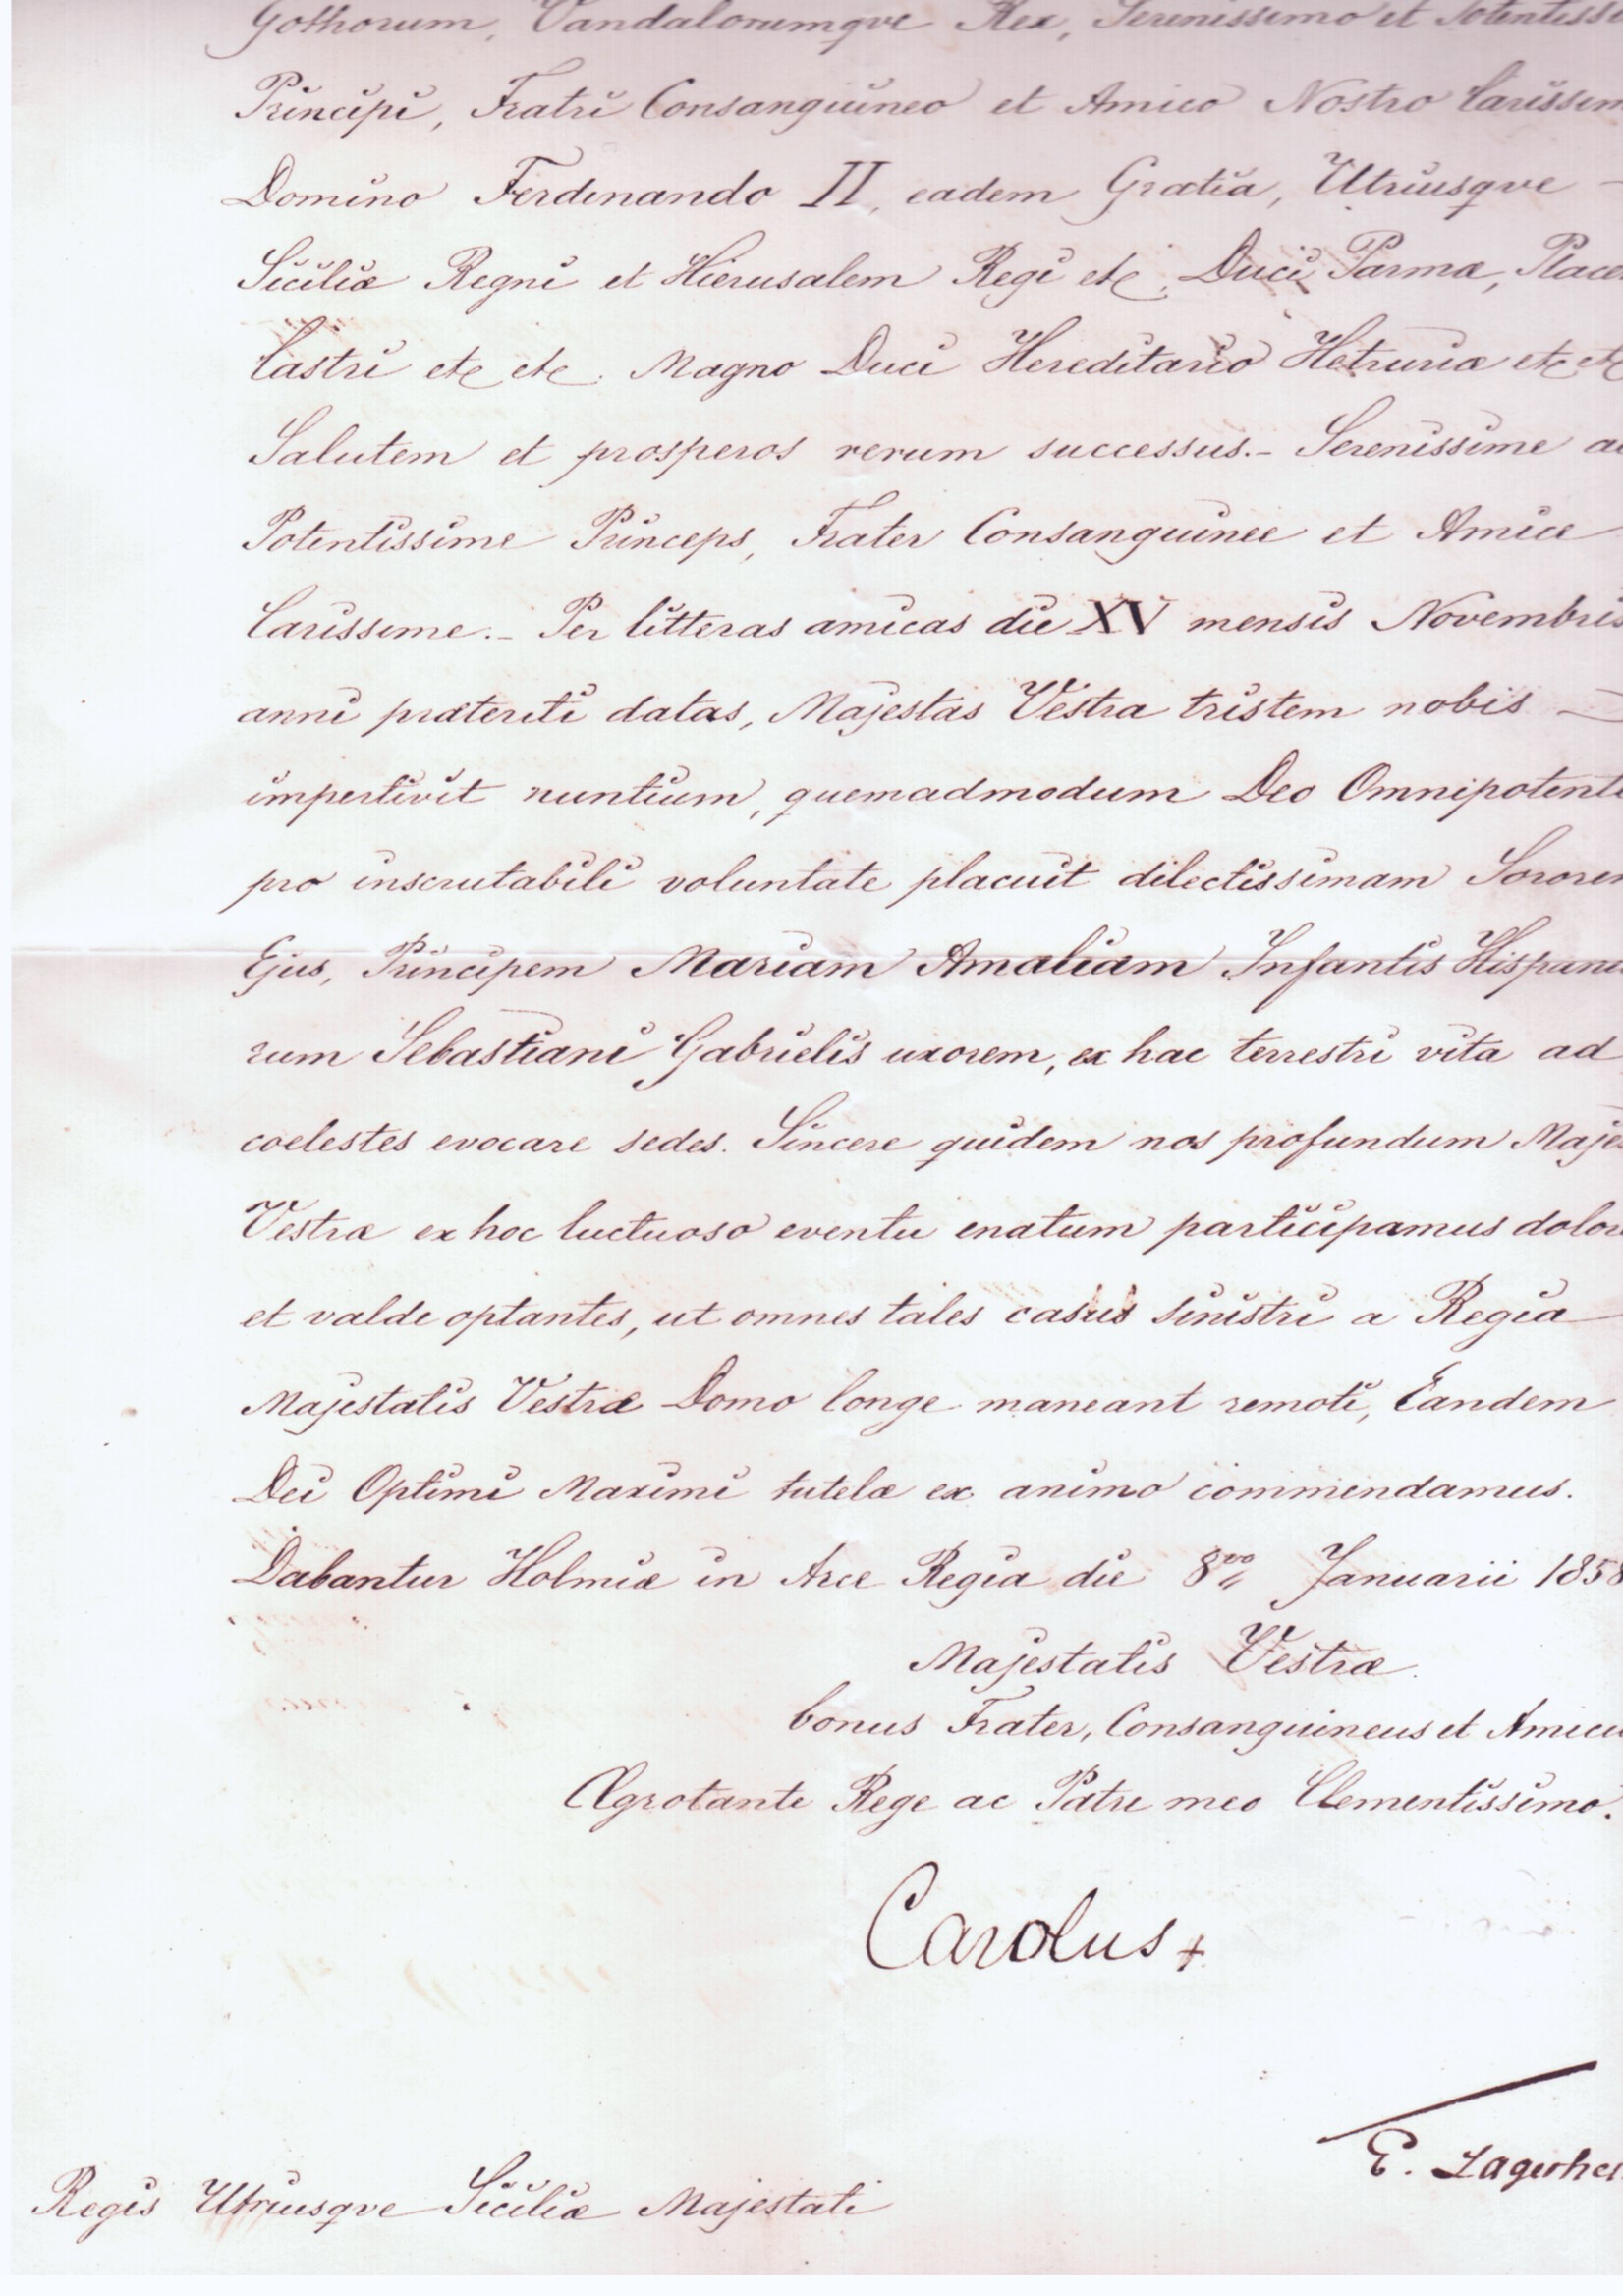 Gothorum, Vandalorumqve Rex, Serenissimo et Potentissi
Principi, Fratri Consanguineo et Amico Nostro Carissim
Domino Ferdinando II, eadem Gratia, Utriusqve —
Siciliæ Regni et Hierusalem Regi etc. Duci Parmæ, Place
Castri etc etc. Magno Duci Hereditario Hetruriæ etc etc
Salutem et prosperos rerum successus.- Serenissime ac
Potentissime Princeps, Frater Consanguinee et Amice
Carissime.- Per litteras amicas die XV mensis Novembris
anni præteriti datas, Majestas Vestra tristem nobis —
impertivit nuntium, quemadmodum Deo Omnipotenti
pro inscrutabili voluntate placuit dilectissimam Soror
Ejus, Principem Mariam Amaliam Infantis Hispania
rum Sebastiani Gabrielis uxorem, ex hac terrestri vita ad
coelestes evocare sedes. Sincere quidem nos profundum Majes
Vestræ ex hoc luctuoso eventu enatum participamus dolor
et valde optantes, ut omnes tales casus sinistri a Regia
Majestatis Vestræ Domo longe maneant remoti, Eandem
Dei Optimi Maximi tutelæ ex animo commendamus.
Dabantur Holmiæ in Arce Regia die 8vo Januarii 1858
Majestatis Vestræ
bonus Frater, Consanguineus et Amicu
Ægrotante Rege ac Patre meo Clementissimo.
Carolus
E. Lagerhei
Regis Utriusqve Siciliæ Majestati